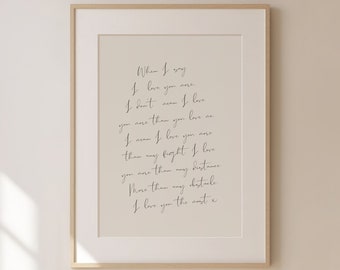 When I say
I love you more
I don't mean I love
you more than you love me
I mean I love you more
than any fight I love
you more than any distance
More than any obstacle
I love you the most x